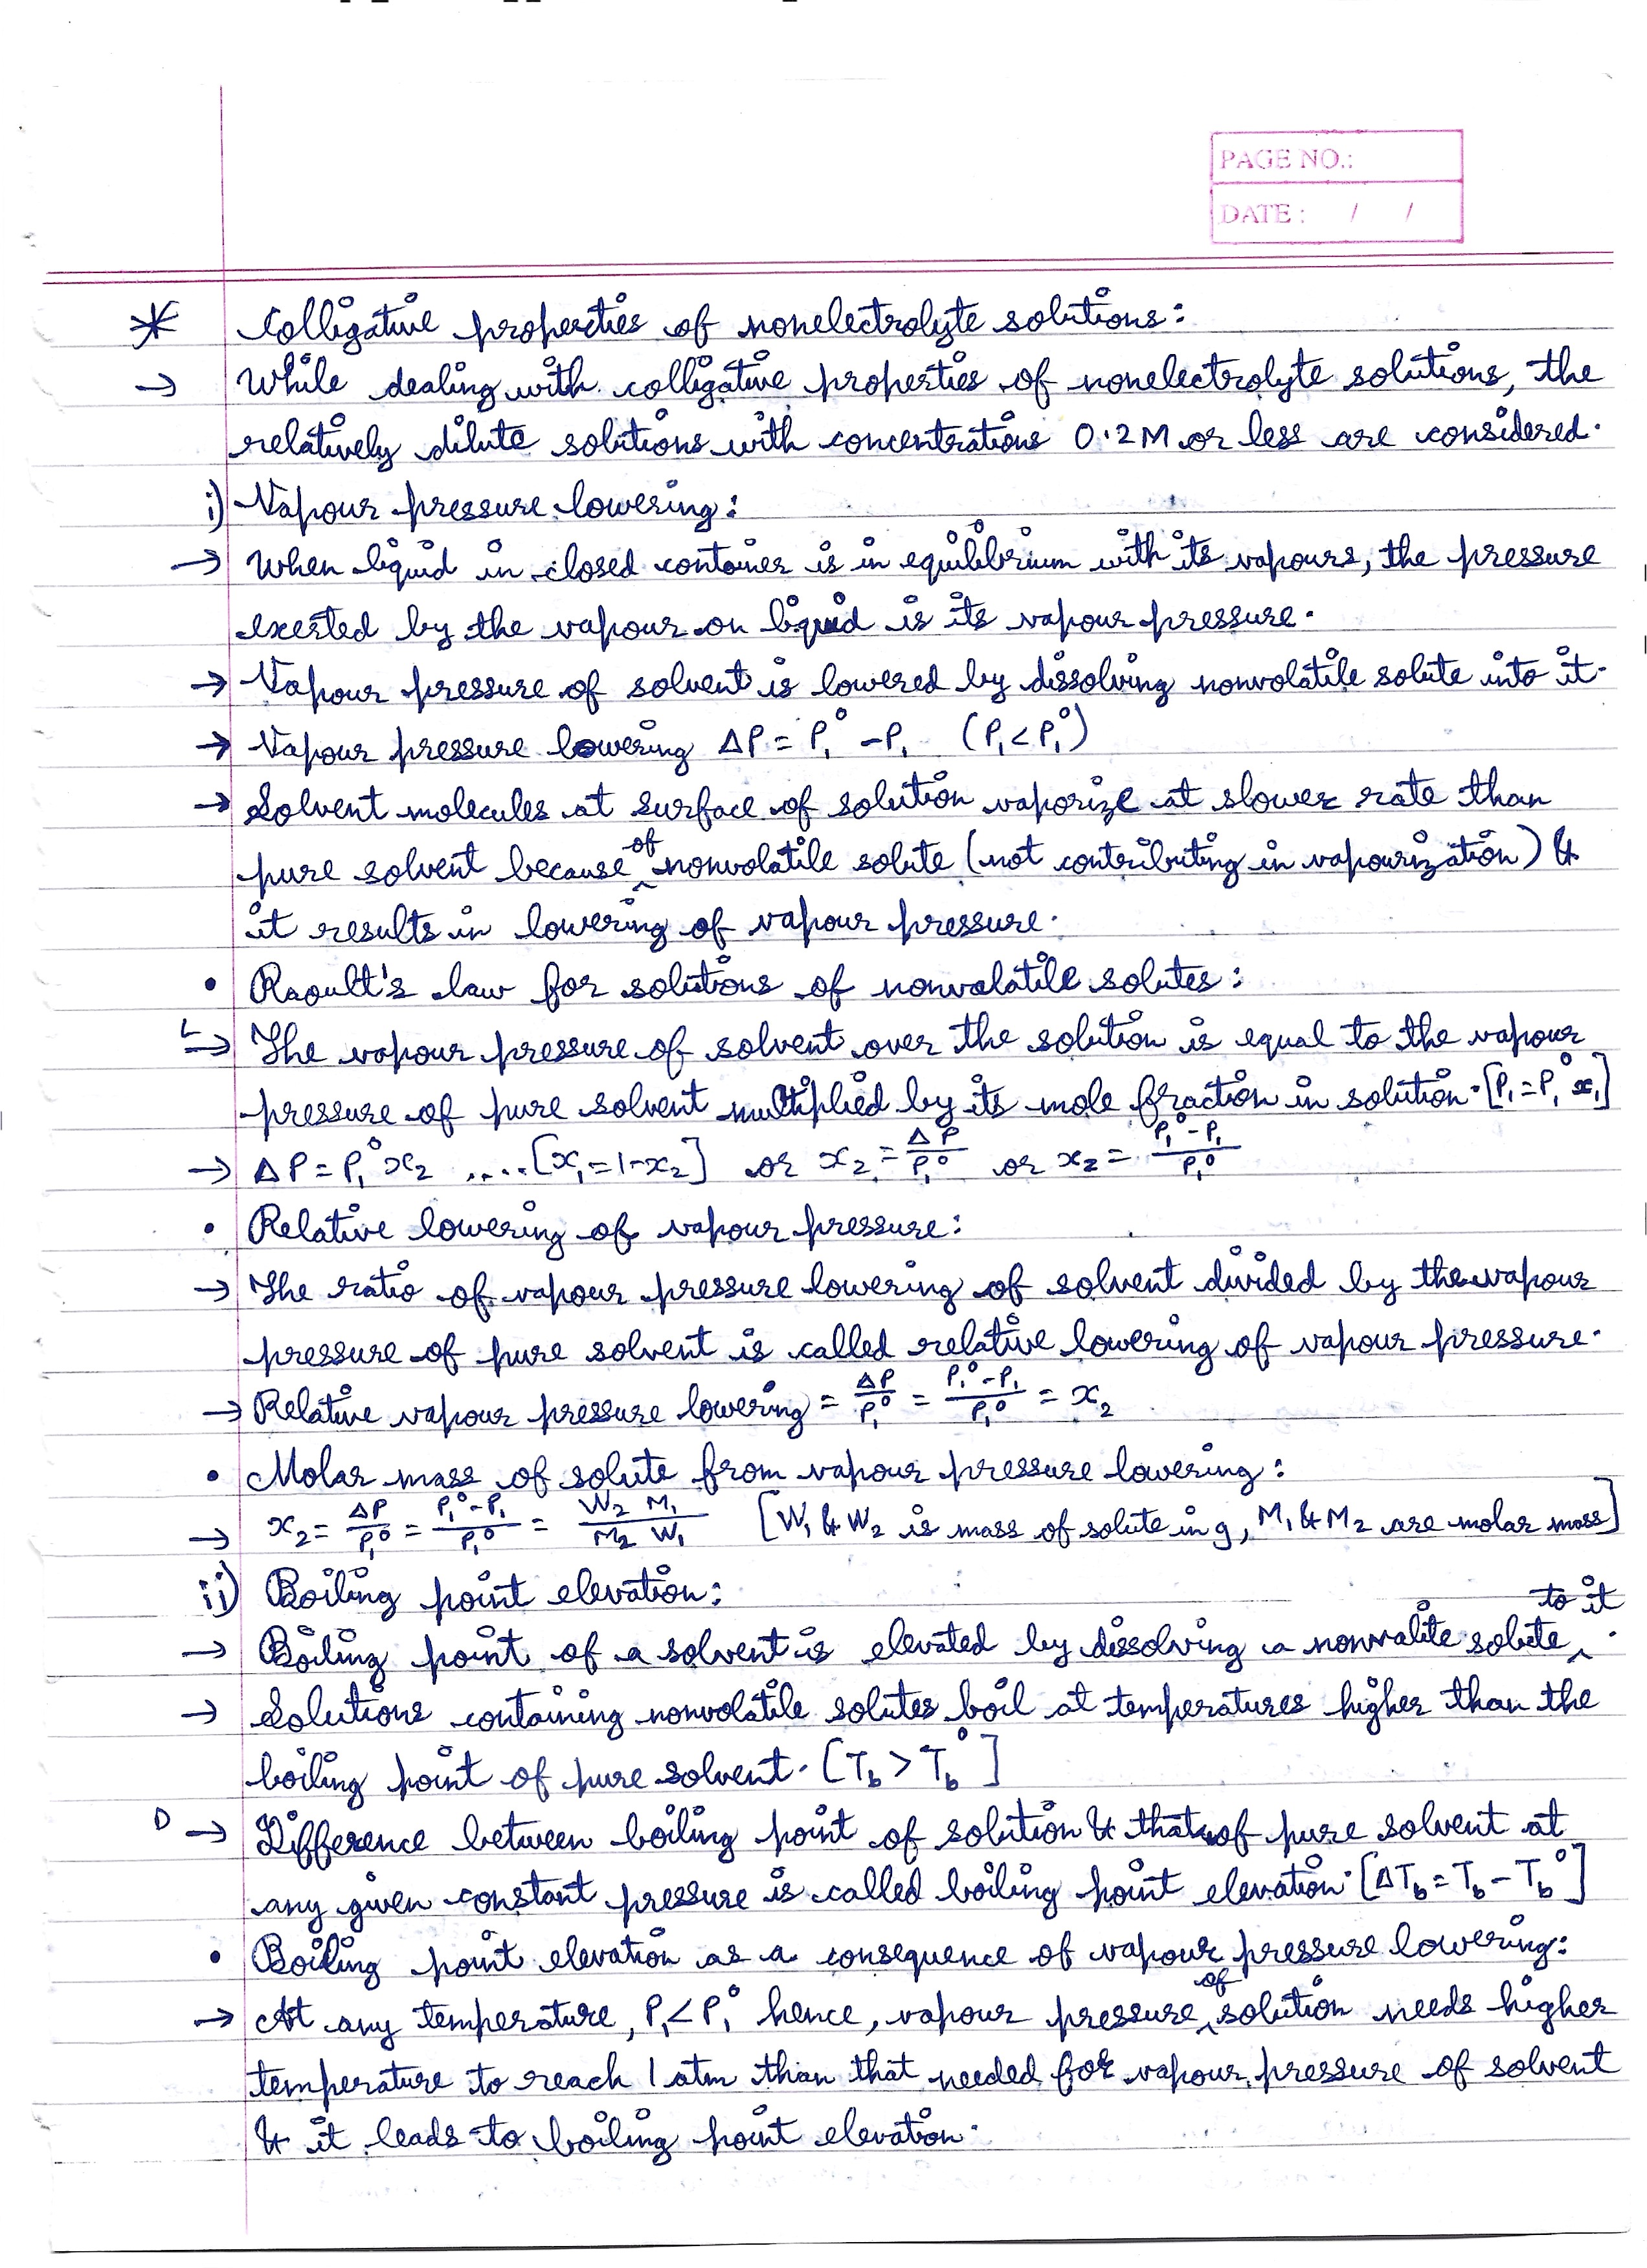 PAGE NO.:
DATE: / /
* Colligative properties of nonelectrolyte solutions:
→ While dealing with colligative properties of nonelectrolyte solutions, the
relatively dilute solutions with concentrations 0.2M or less are considered.
i) Vapour pressure lowering:
→ When liquid in closed container is in equilibrium with its vapours, the pressure
exerted by the vapour on liquid is its vapour pressure.
→ Vapour pressure of solvent is lowered by dissolving nonvolatile solute into it.
→ Vapour pressure lowering ΔP = P₁° - P₁ (P₁ < P₁°)
→ Solvent molecules at surface of solution vaporize at slower rate than
pure solvent because of nonvolatile solute (not contributing in vapourization) &
it results in lowering of vapour pressure.
• Raoult's law for solutions of nonvolatile solutes:
L→ The vapour pressure of solvent over the solution is equal to the vapour
pressure of pure solvent multiplied by its mole fraction in solution. [P₁ = P₁° x₁]
→ ΔP = P₁° x₂ .... [x₁ = 1-x₂] or x₂ = ΔP/P₁° or x₂ = (P₁° - P₁)/P₁°
• Relative lowering of vapour pressure:
→ The ratio of vapour pressure lowering of solvent divided by the vapour
pressure of pure solvent is called relative lowering of vapour pressure.
→ Relative vapour pressure lowering = ΔP/P₁° = (P₁° - P₁)/P₁° = x₂
• Molar mass of solute from vapour pressure lowering:
→ x₂ = ΔP/P₁° = (P₁° - P₁)/P₁° = W₂ M₁/M₂ W₁ [W₁ & W₂ is mass of solute in g, M₁ & M₂ are molar mass]
ii) Boiling point elevation:
→ Boiling point of a solvent is elevated by dissolving a nonvalite solute to it.
→ Solutions containing nonvolatile solutes boil at temperatures higher than the
boiling point of pure solvent. [Tb > Tb°]
D → Difference between boiling point of solution & that of pure solvent at
any given constant pressure is called boiling point elevation. [ΔTb = Tb - Tb°]
• Boiling point elevation as a consequence of vapour pressure lowering:
→ At any temperature, P₁ < P₁° hence, vapour pressure of solution needs higher
temperature to reach 1 atm than that needed for vapour pressure of solvent
& it leads to boiling point elevation.